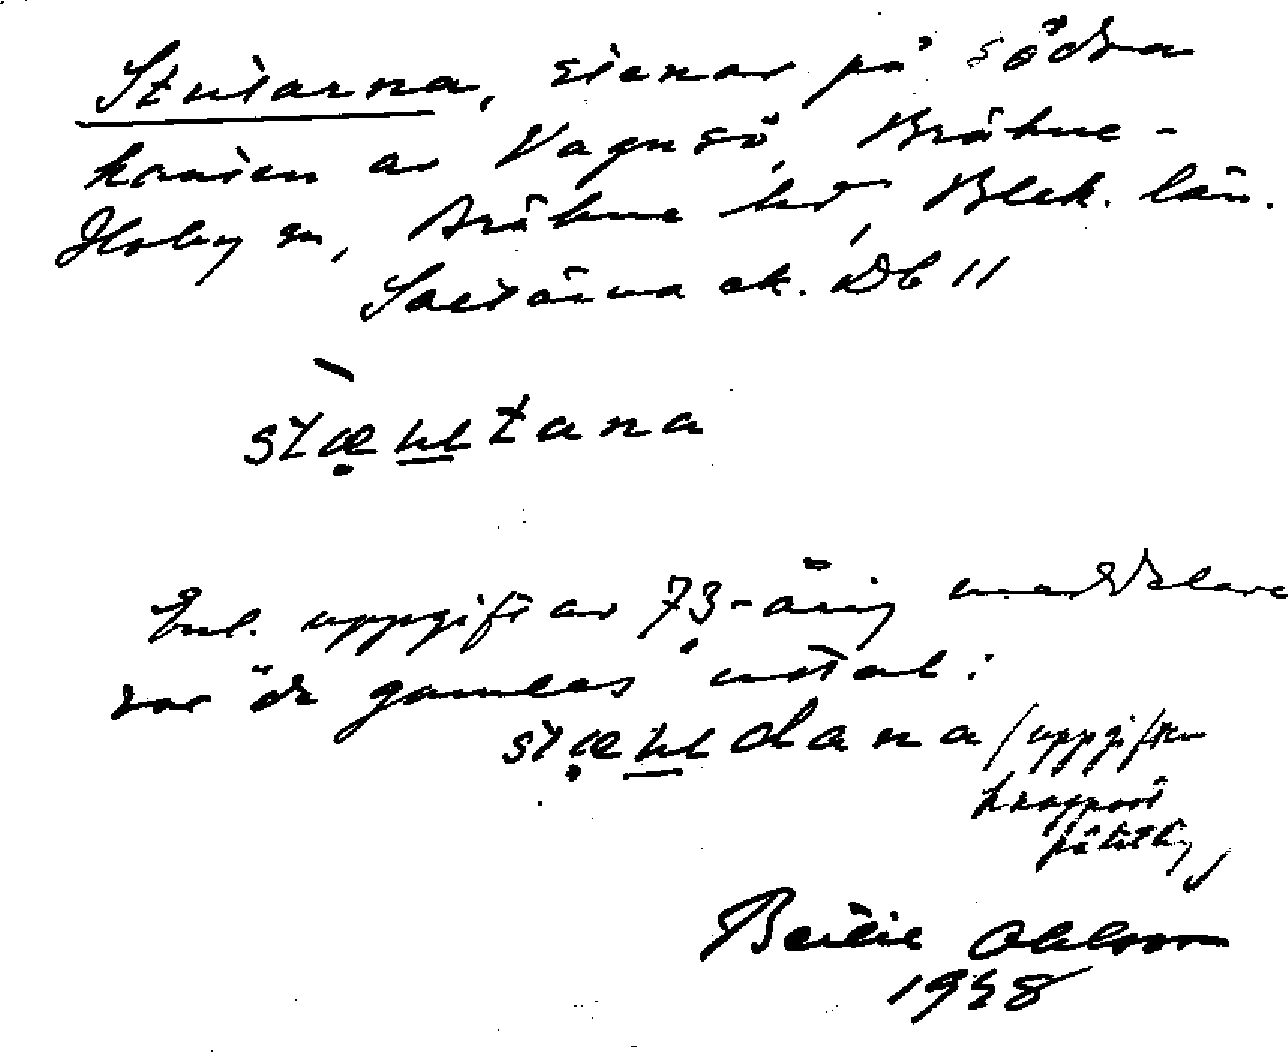 Stutarna, stenar på södra
kanten av Vagnsö, Bräkne-
Hoby sn, Bräkne hd, Blek. län.
Saltärna ek. Db 11
stæutana
Enl. uppgift av 73-årig meddelare
var de gamlas uttal:
stæudana (uppgiften
knappast
pålitlig)
Bertil Ohlson
1948